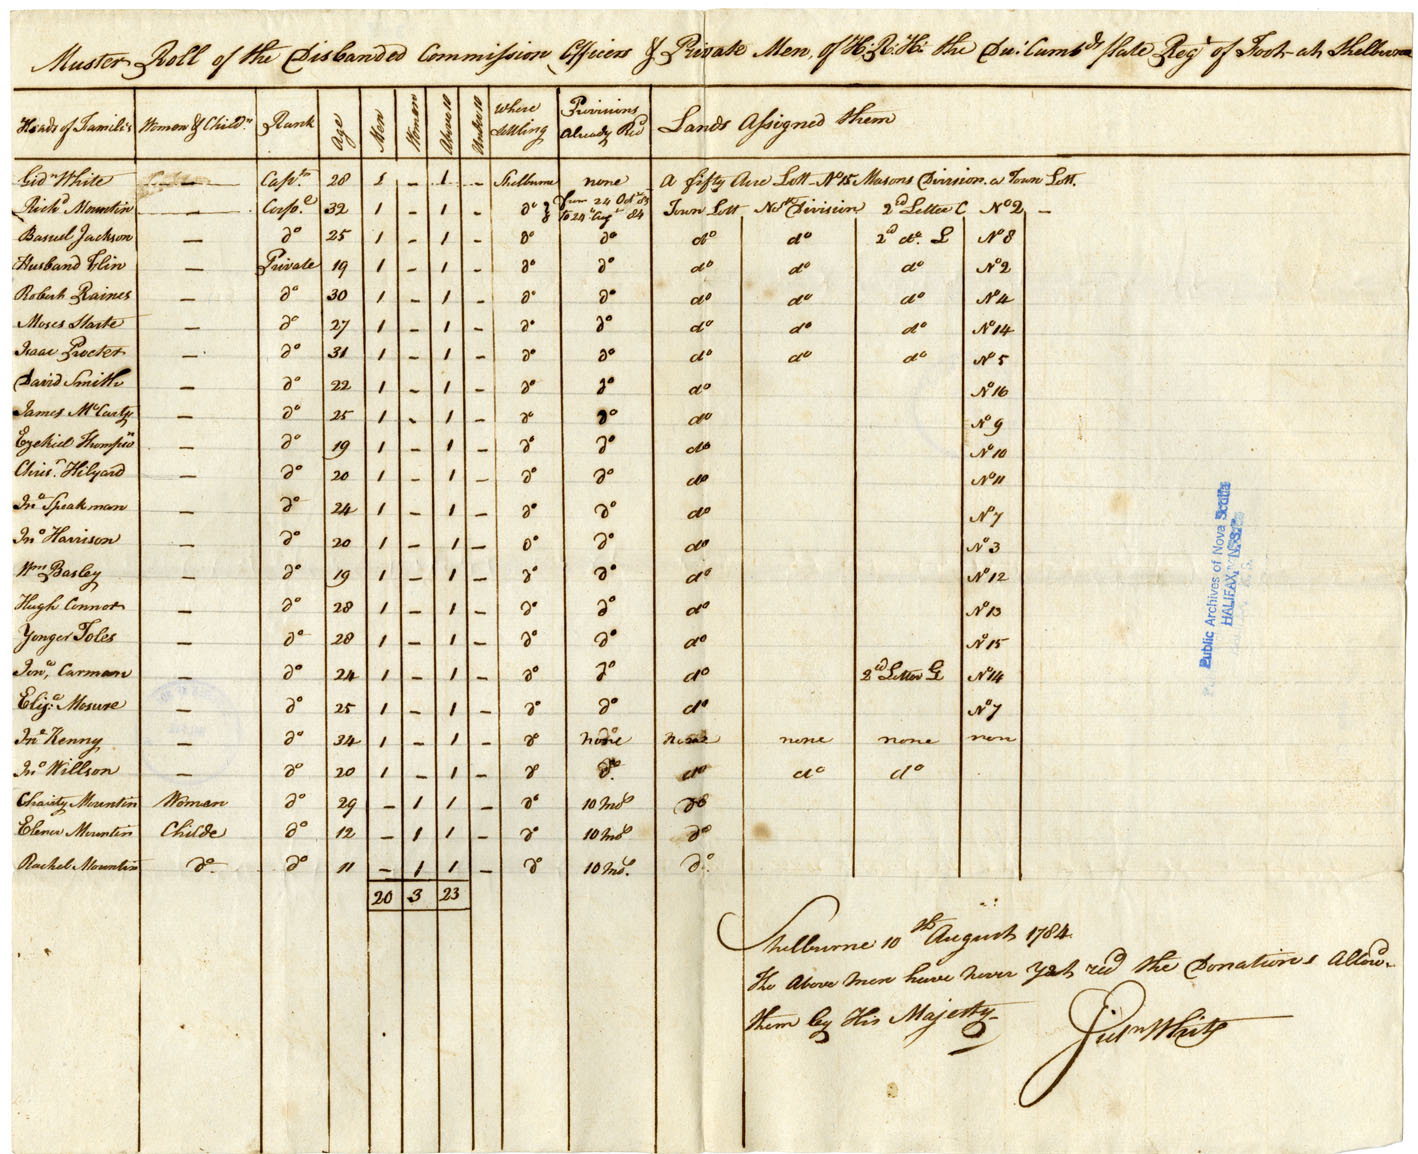 Muster Roll of the Disbanded Commission Officers & Private Men, of H: R: H: the Du: Cumbds late Regt of Foot at Shelburne
Heads of Families Women & Childn Rank Age Men Women Above 10 Under 10 Where settling Provisions Already Recd Lands Assigned them
Gidn White — Captn 28 1 - 1 - Shelburne none A fifty Acre Lott No 15 Masons Division a Town Lott.
Richd Mountin — Corpl 32 1 - 1 - do from 24 Octr 83 to 24th Augt 84 Town Lott Division 2nd Letter C No 2 —
Basuel Jackson — do 25 1 - 1 - do do do do 2d do L No 8
Husband Flin — Private 19 1 - 1 - do do do do do No 2
Robert Raines — do 30 1 - 1 - do do do do do No 4
Moses Harte — do 27 1 - 1 - do do do do do No 14
Isaac Procter — do 31 1 - 1 - do do do do do No 5
David Smith — do 22 1 - 1 - do do do No 16
James McCarty — do 25 1 - 1 - do do do No 9
Ezekiel Thompson — do 19 1 - 1 - do do do No 10
Chrisr Hilyard — do 20 1 - 1 - do do do No 11
Jno Speakman — do 24 1 - 1 - do do do No 7
Jno Harrison — do 20 1 - 1 - do do do No 3
Wm Basley — do 19 1 - 1 - do do do No 12
Hugh Connor — do 28 1 - 1 - do do do No 13
Yonger Toles — do 28 1 - 1 - do do do No 15
Jona Carman — do 24 1 - 1 - do do do 2nd Letter G No 14
Elija Mosure — do 25 1 - 1 - do do do No 7
Jno Kenny — do 34 1 - 1 - do none none none none non
Jno Willson — do 20 1 - 1 - do do do do do
Charity Mountin Woman do 29 - 1 1 - do 10 Mos do
Elenor Mountin Childe do 12 - 1 1 - do 10 Mos do
Rachel Mountin do do 11 - 1 1 - do 10 Mos. do
20 3 23
Shelburne 10th August 1784.
The Above Men have never Yet recd the Donations Allowd
them by His Majesty
Gidn White
Public Archives of Nova Scotia
HALIFAX, N.S.